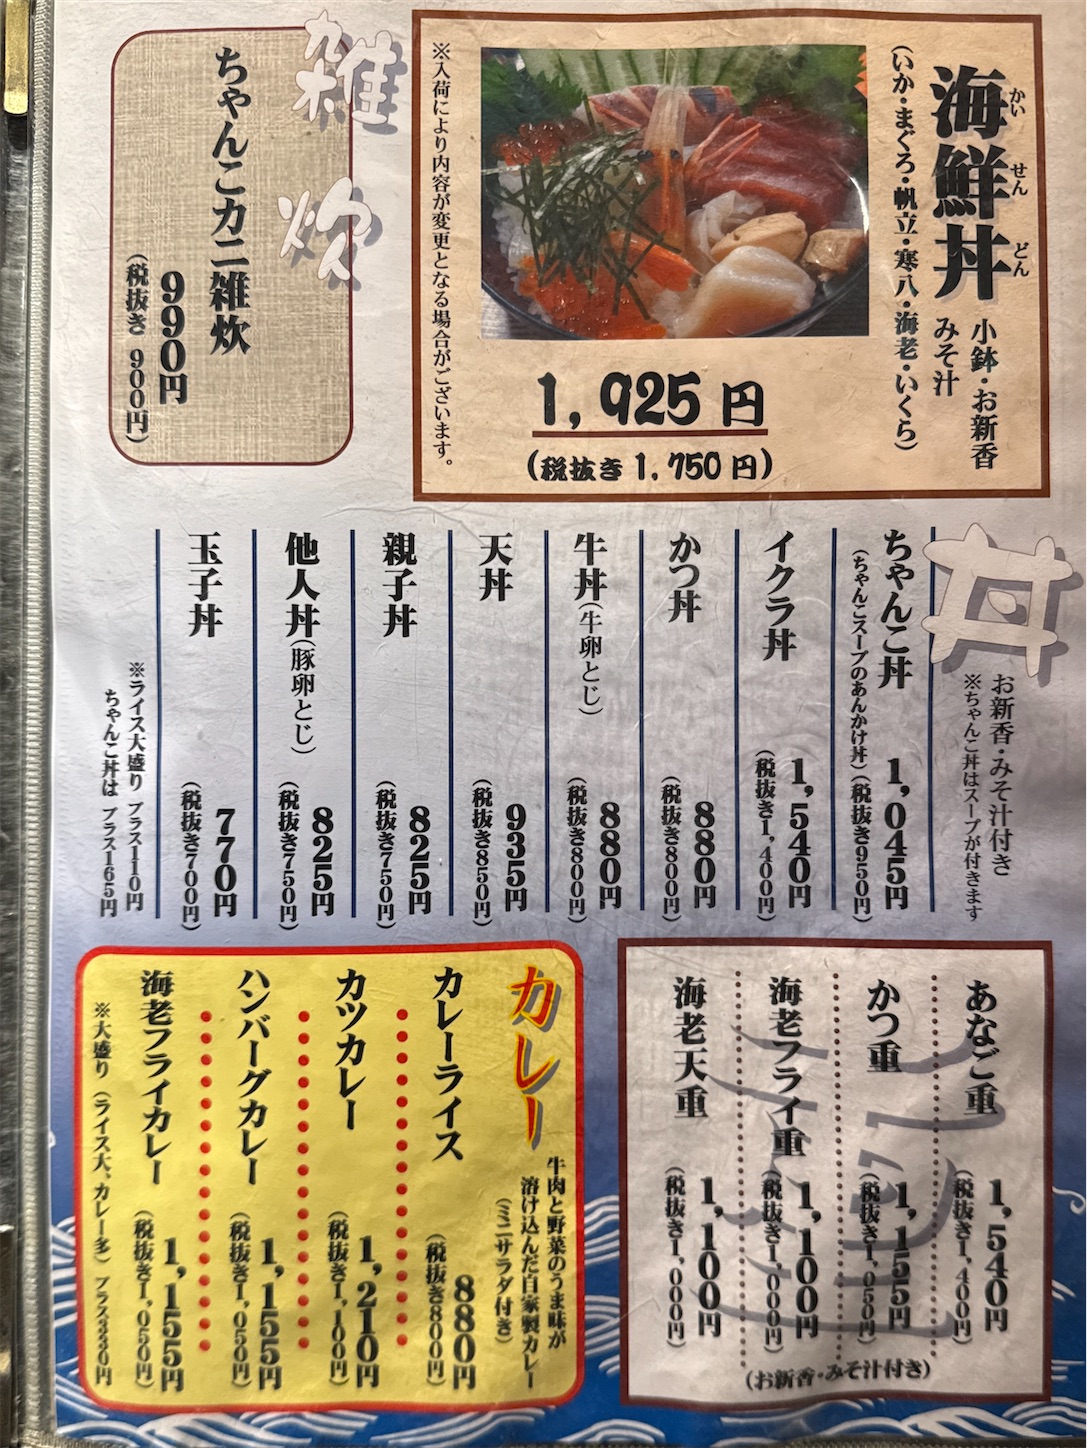 海鮮丼
かいせんどん
小鉢・お新香
みそ汁
(いか・まぐろ・帆立・寒八・海老・いくら)
1,925円
(税抜き1,750円)
※入荷により内容が変更となる場合がございます。
雑炊
ちゃんこカニ雑炊
990円
(税抜き 900円)
丼
お新香・みそ汁付き
※ちゃんこ丼はスープが付きます
ちゃんこ丼 1,045円
(ちゃんこスープのあんかけ丼)(税抜き950円)
イクラ丼 1,540円
(税抜き1,400円)
かつ丼 880円
(税抜き800円)
牛丼(牛卵とじ) 880円
(税抜き800円)
天丼 935円
(税抜き850円)
親子丼 825円
(税抜き750円)
他人丼(豚卵とじ) 825円
(税抜き750円)
玉子丼 770円
(税抜き700円)
※ライス大盛り プラス110円
ちゃんこ丼は プラス165円
あなご重 1,540円
(税抜き1,400円)
かつ重 1,155円
(税抜き1,050円)
海老フライ重 1,100円
(税抜き1,000円)
海老天重 1,100円
(税抜き1,000円)
(お新香・みそ汁付き)
カレー
牛肉と野菜のうま味が
溶け込んだ自家製カレー
(ミニサラダ付き)
カレーライス 880円
(税抜き800円)
カツカレー 1,210円
(税抜き1,100円)
ハンバーグカレー 1,155円
(税抜き1,050円)
海老フライカレー 1,155円
(税抜き1,050円)
※大盛り(ライス大、カレー多) プラス330円